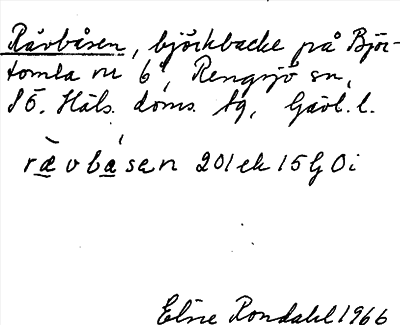 Rävbåsen, björkbacke på Björ-
tomta nr 6, Rengsjö sn,
SÖ. Häls. doms. tg, Gävl. l.
rævbasen 201ek 15G0i
Elsie Rondahl 1966